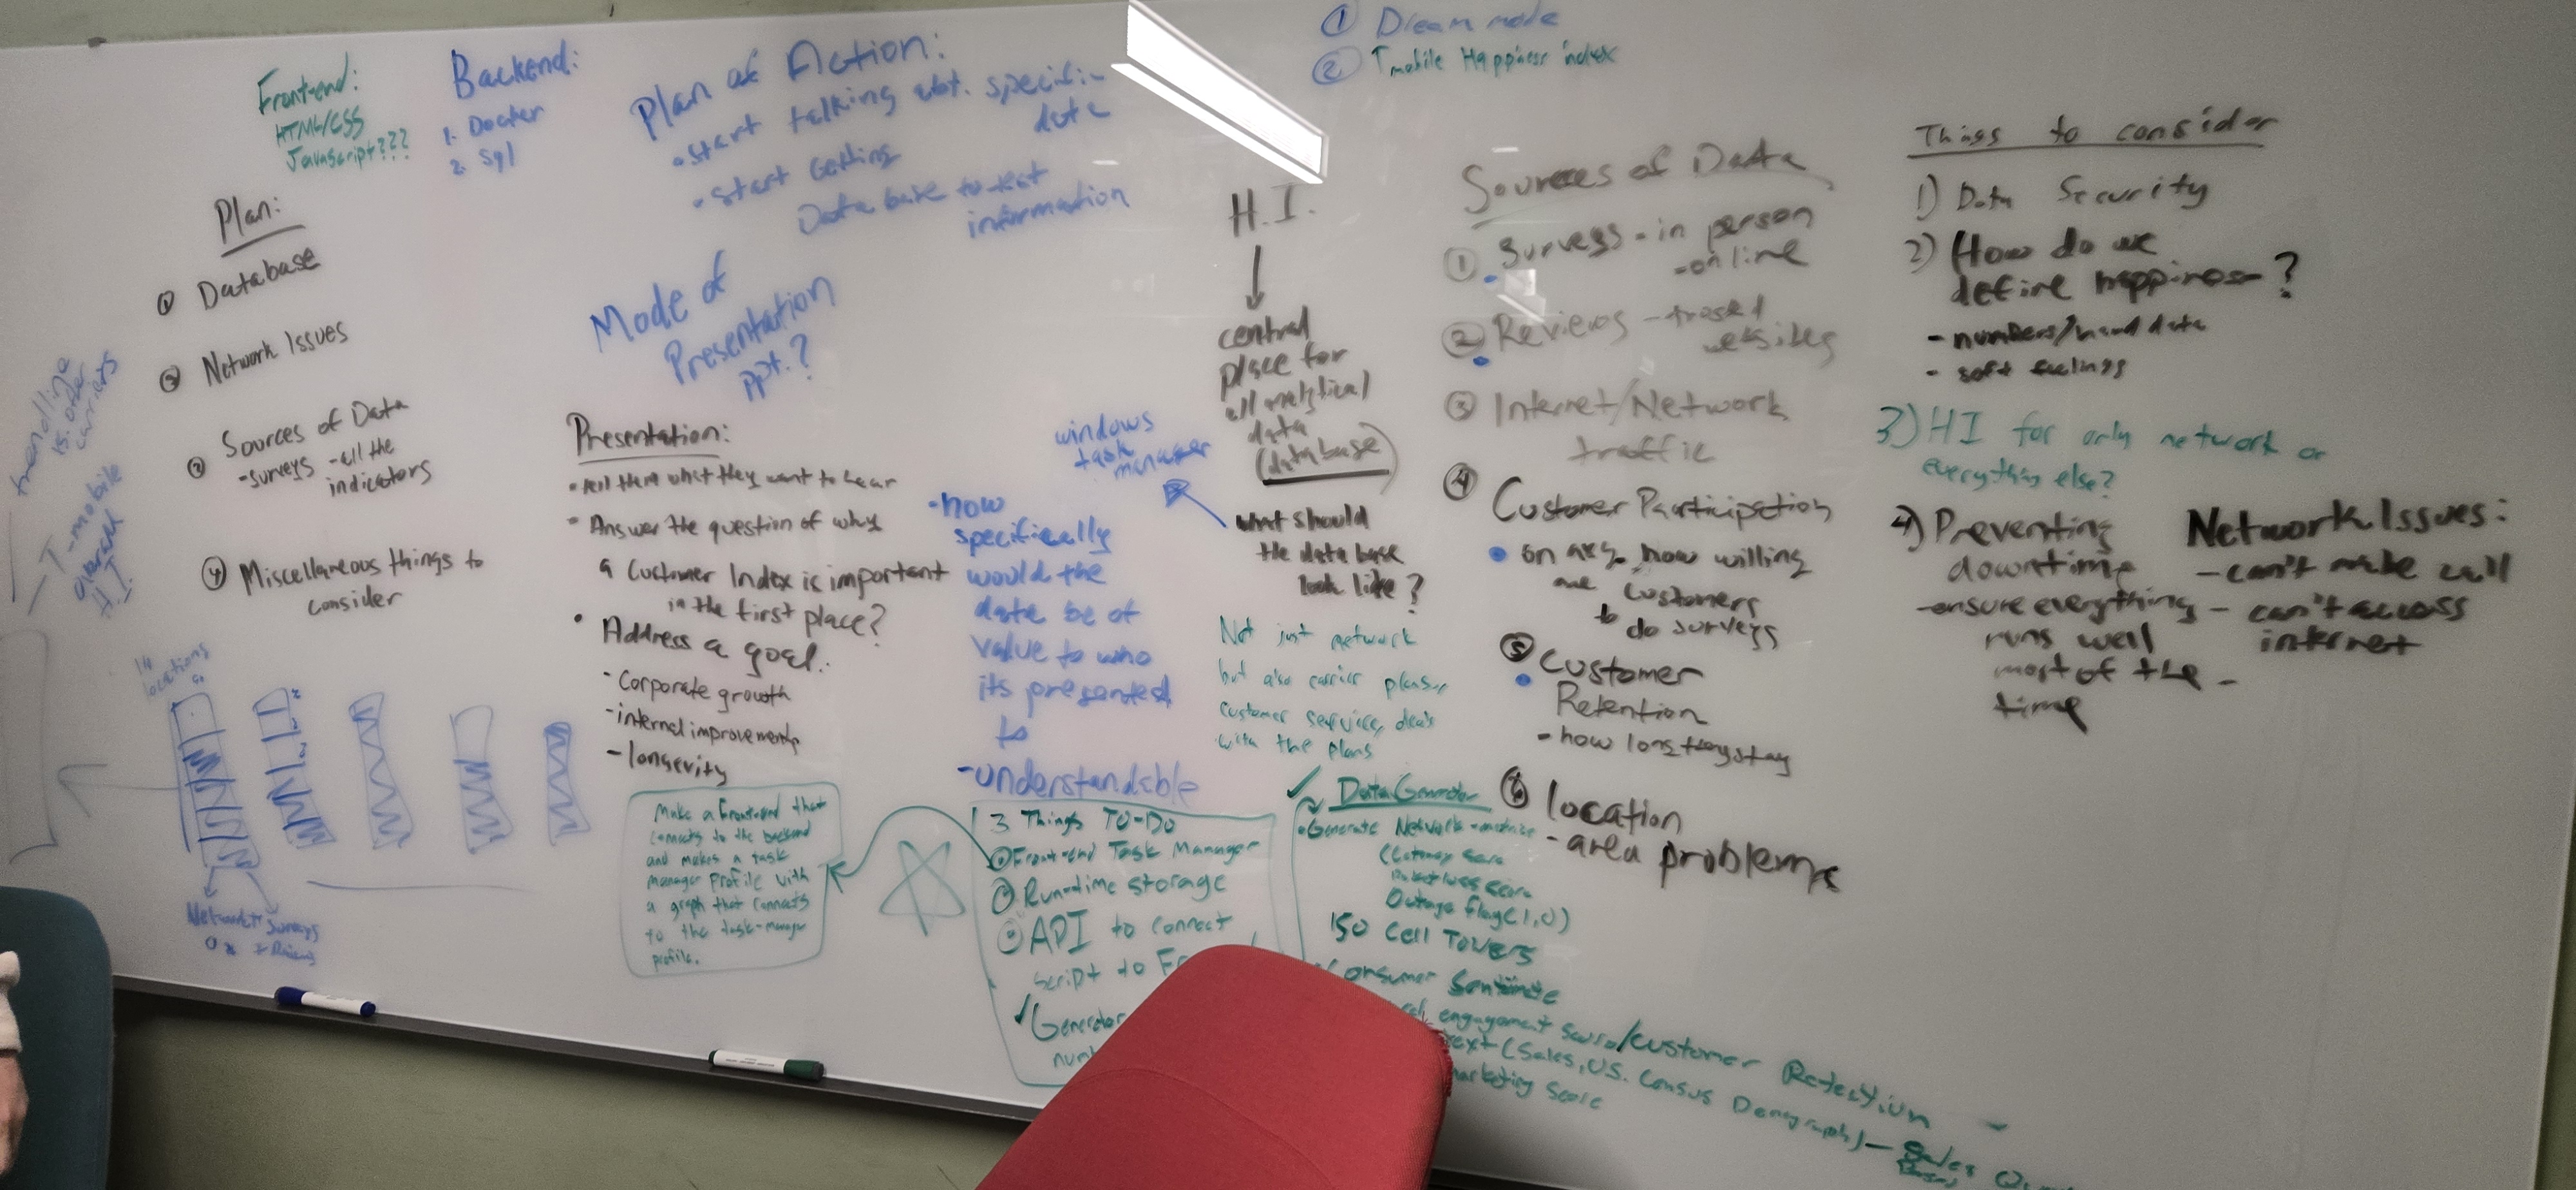 ① Dream mode
② Tmobile Happiness index
Front-end:
HTML/CSS
Javascript???
Backend:
1. Docker
2. Sql
Plan of Action:
• start talking abt. specific
data
• start Getting
Data base to test
information
Plan:
① Database
② Network Issues
③ Sources of Data
- surveys - all the
indicators
④ Miscellaneous things to
consider
trendline
vs. other
carriers
— T-mobile
overall
H.I.
14
locations
Network Surveys
Mode of
Presentation
ppt.?
Presentation:
• tell them what they want to hear
• Answer the question of why
a Customer Index is important
in the first place?
• Address a goal:
- Corporate growth
- internal improvements
- longevity
Make a Front-end that
connects to the backend
and makes a task
manager profile with
a graph that connects
to the task-manager
profile.
windows
task
manager
• how
specifically
would the
data be of
value to who
its presented
to
- understandable
3 Things TO-DO
① Front-end Task Manager
② Run-time storage
③ API to connect
script to
✓ Generator
H.I.
central
place for
all analytical
data
(database)
what should
the data base
look like?
Not just network
but also carrier plans,
customer service, deals
with the plans
✓ Data Generator
• Generate Network
(Latency score
Packet loss score
Outage flag (1,0)
150 Cell Towers
Consumer
engagement score/customer Retention
(Sales, U.S. Census Demography) — Sales
marketing score
Sources of Data
① Surveys - in person
- online
② Reviews - trusted
websites
③ Internet/Network
traffic
④ Customer Participation
• on avg. how willing
are customers
to do surveys
⑤ Customer
Retention
- how long they stay
⑥ location
- area problems
Things to consider
1) Data Security
2) How do we
define happiness?
- numbers/hard data
- soft feelings
3) HI for only network or
everything else?
4) Preventing
downtime
- ensure everything
runs well
most of the
time
Network Issues:
- can't make call
- can't access
internet